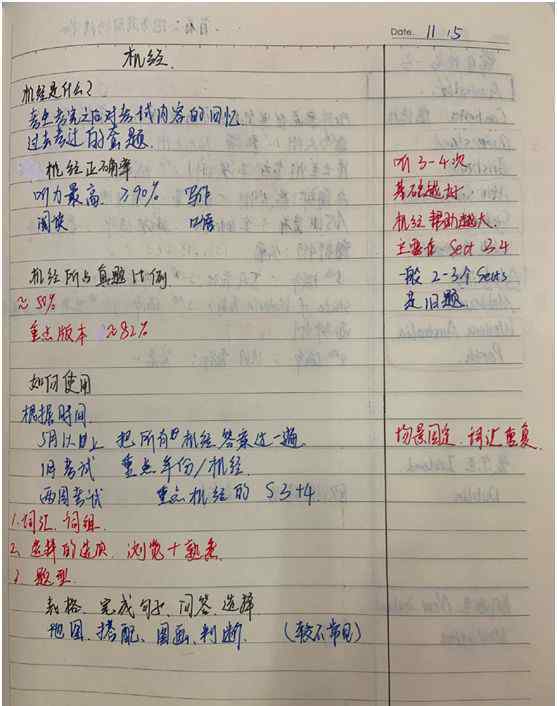 Date. 11 15
机经.
机经是什么?
考生考试之后对考试内容的回忆.
过去考过的套题.
机经正确率
听力最高 ≥90% 写作
阅读 口语
听 3-4次
基础越好
机经帮助越大.
主要在 Sect 3.4
一般 2-3个 Sects
是旧题.
机经所占真题比例.
≈ 50%
重点版本 ≈82%
如何使用
根据时间.
5月以上 把所有的机经答案过一遍
场景固定, 词汇重复.
1月考试 重点年份/机经
两周考试 重点机经的 S3+4.
1.词汇、词组.
2、选择的选项, 浏览+熟悉
3 题型.
表格、完成句子、问答、选择
地图、搭配、图画、判断. (较不常见)